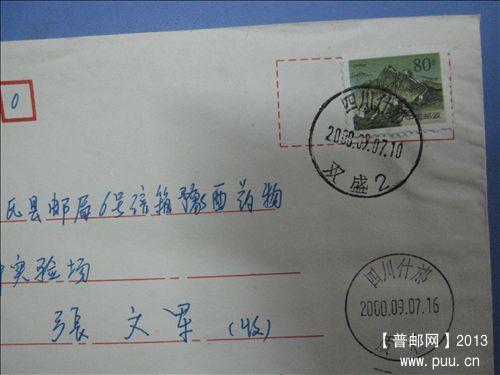 80分
四川什
2000.09.07.10
双盛2
0
氏县邮局6号信箱豫西药物
实验场
張文军(收)
四川什邡
2000.09.07.16
【普邮网】2013
www.puu.cn